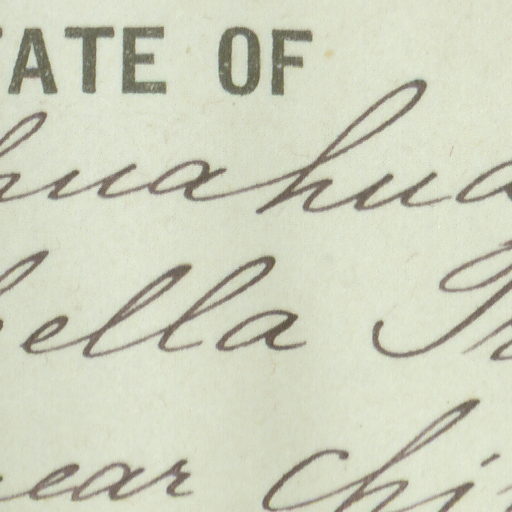 TATE OF
huahua
ella
ear Chi